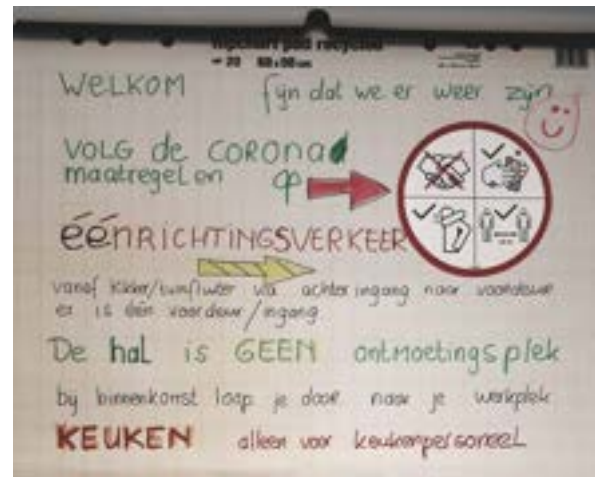 flipchart pad recycled
20 68x98cm
WELKOM fijn dat we er weer zijn
VOLG de CORONA
maatregelen op
ÉÉNRICHTINGSVERKEER
vanaf via achteringang naar voordeur
er is één voordeur/ingang
De hal is GEEN ontmoetingsplek
bij binnenkomst loop je door naar je werkplek
KEUKEN alleen voor keukenpersoneel